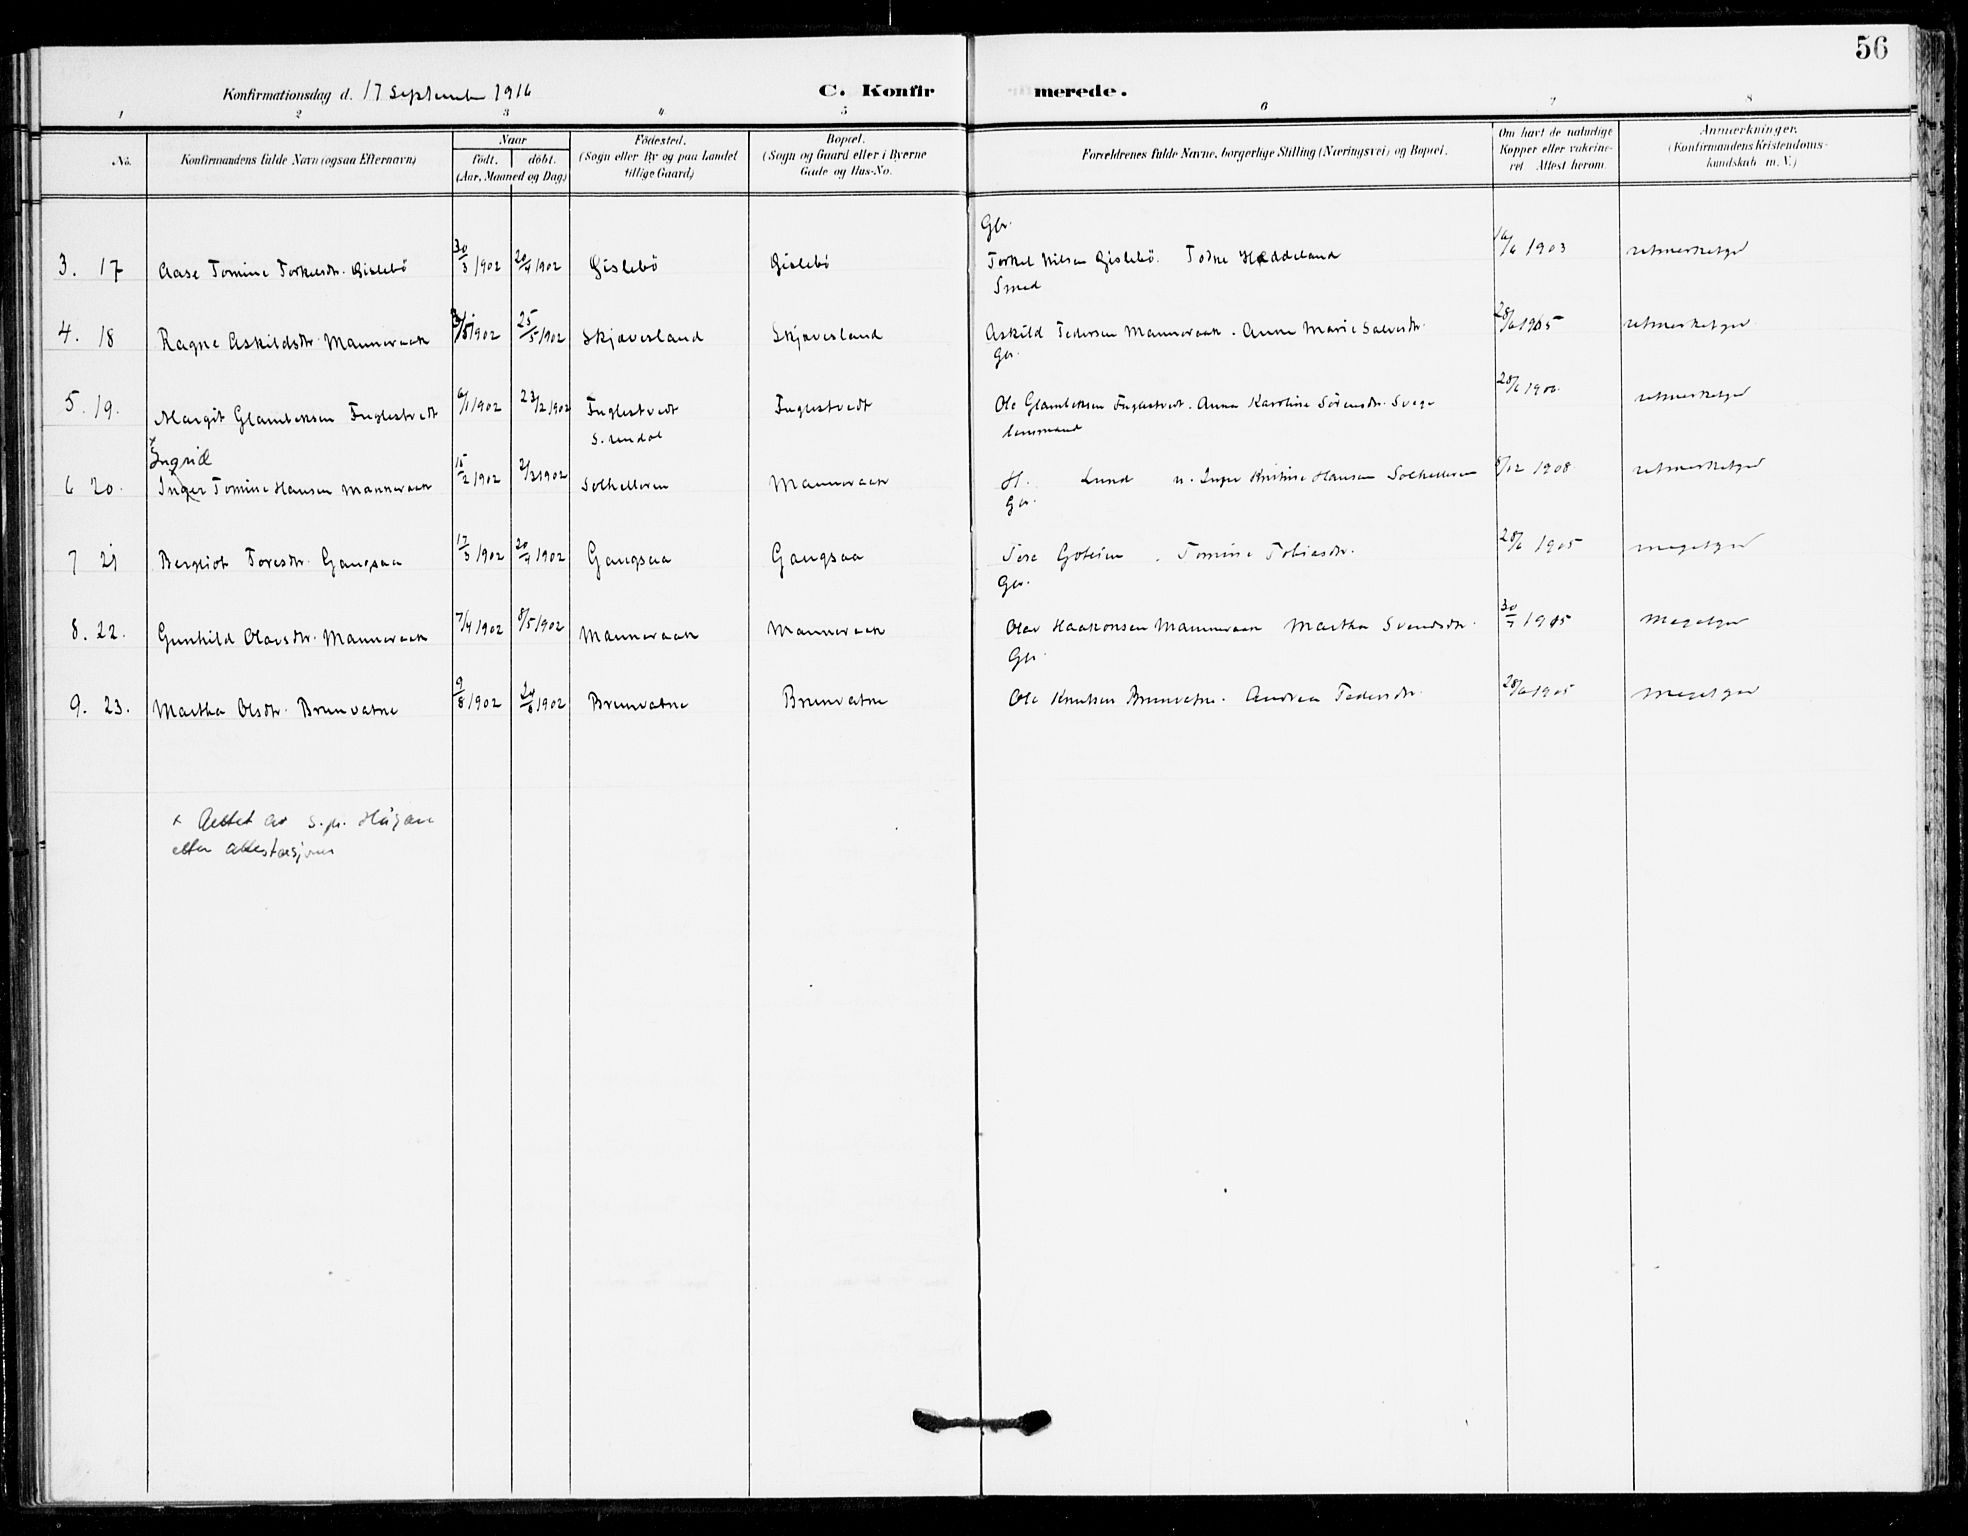 56
Konfirmationsdag d. 17 September 1916 C. Konfirmerede.
1 2 3 4 5 6 7 8
No. Konfirmandens fulde Navn (ogsaa Efternavn) Naar født. døbt. (Aar, Maaned og Dag) Fødested. (Sogn eller By og paa Landet tillige Gaard) Bopæl. (Sogn og Gaard eller i Byerne Gade og Hus-No. Forældrenes fulde Navne, borgerlige Stilling (Næringsvei) og Bopæl. Om havt de naturlige Kopper eller vakcineret Attest herom. Anmerkninger. (Konfirmandens Kristendomskundskab m. V.)
Gbr.
3. 17 Aase Tomine Torkelsdr. Gislebö 30/3 1902 20/4 1902 Gislebö Gislebö Torkel Nilsen Gislebö. Todne Hæddeland 16/6 1903
Smed
4. 18 Ragne Askildsdr. Manneraak /5 1902 25/5 1902 Skjævesland Skjævesland Askild Tedersen Manneraak. Anna Marie Salvesdr. 28/6 1905
Gbr.
5. 19. Margit Glambeksen Fuglestvedt 6/1 1902 23/2 1902 Fuglestvedt Fuglestvedt Ole Glambeksen Fuglestvedt. Anna Karoline Sörensdr. Svege 28/6 1906
S. Undal
lensmand
x Ingrid
6 20. Inger Tomine Hansen Manneraak 15/2 1902 2/2 1902 Solhelleren Manneraak H. Lund u. Inger Kristine Hansen Solhelleren 8/12 1908
Gbr.
7 21 Bergliot Toresdr. Gangsaa 17/3 1902 20/4 1902 Gangsaa Gangsaa Tore Tomine Tobiasdr. 28/6 1905 megetgod
Gbr.
8. 22. Gunhild Olavsdr. Manneraak 7/4 1902 8/5 1902 Manneraak Manneraak Olav Haakonsen Manneraak Martha Svendsdr. 30/7 1905 Megetgod
Gbr.
9. 23. Martha Olsdr. Brunvatne 9/8 1902 24/8 1902 Brunvatne Brunvatne Ole Knutsen Brunvatne. Andrea Tedersdr. 28/6 1905 Megetgod
x Rettet av s.pr. Hågan
etter attestasjoner